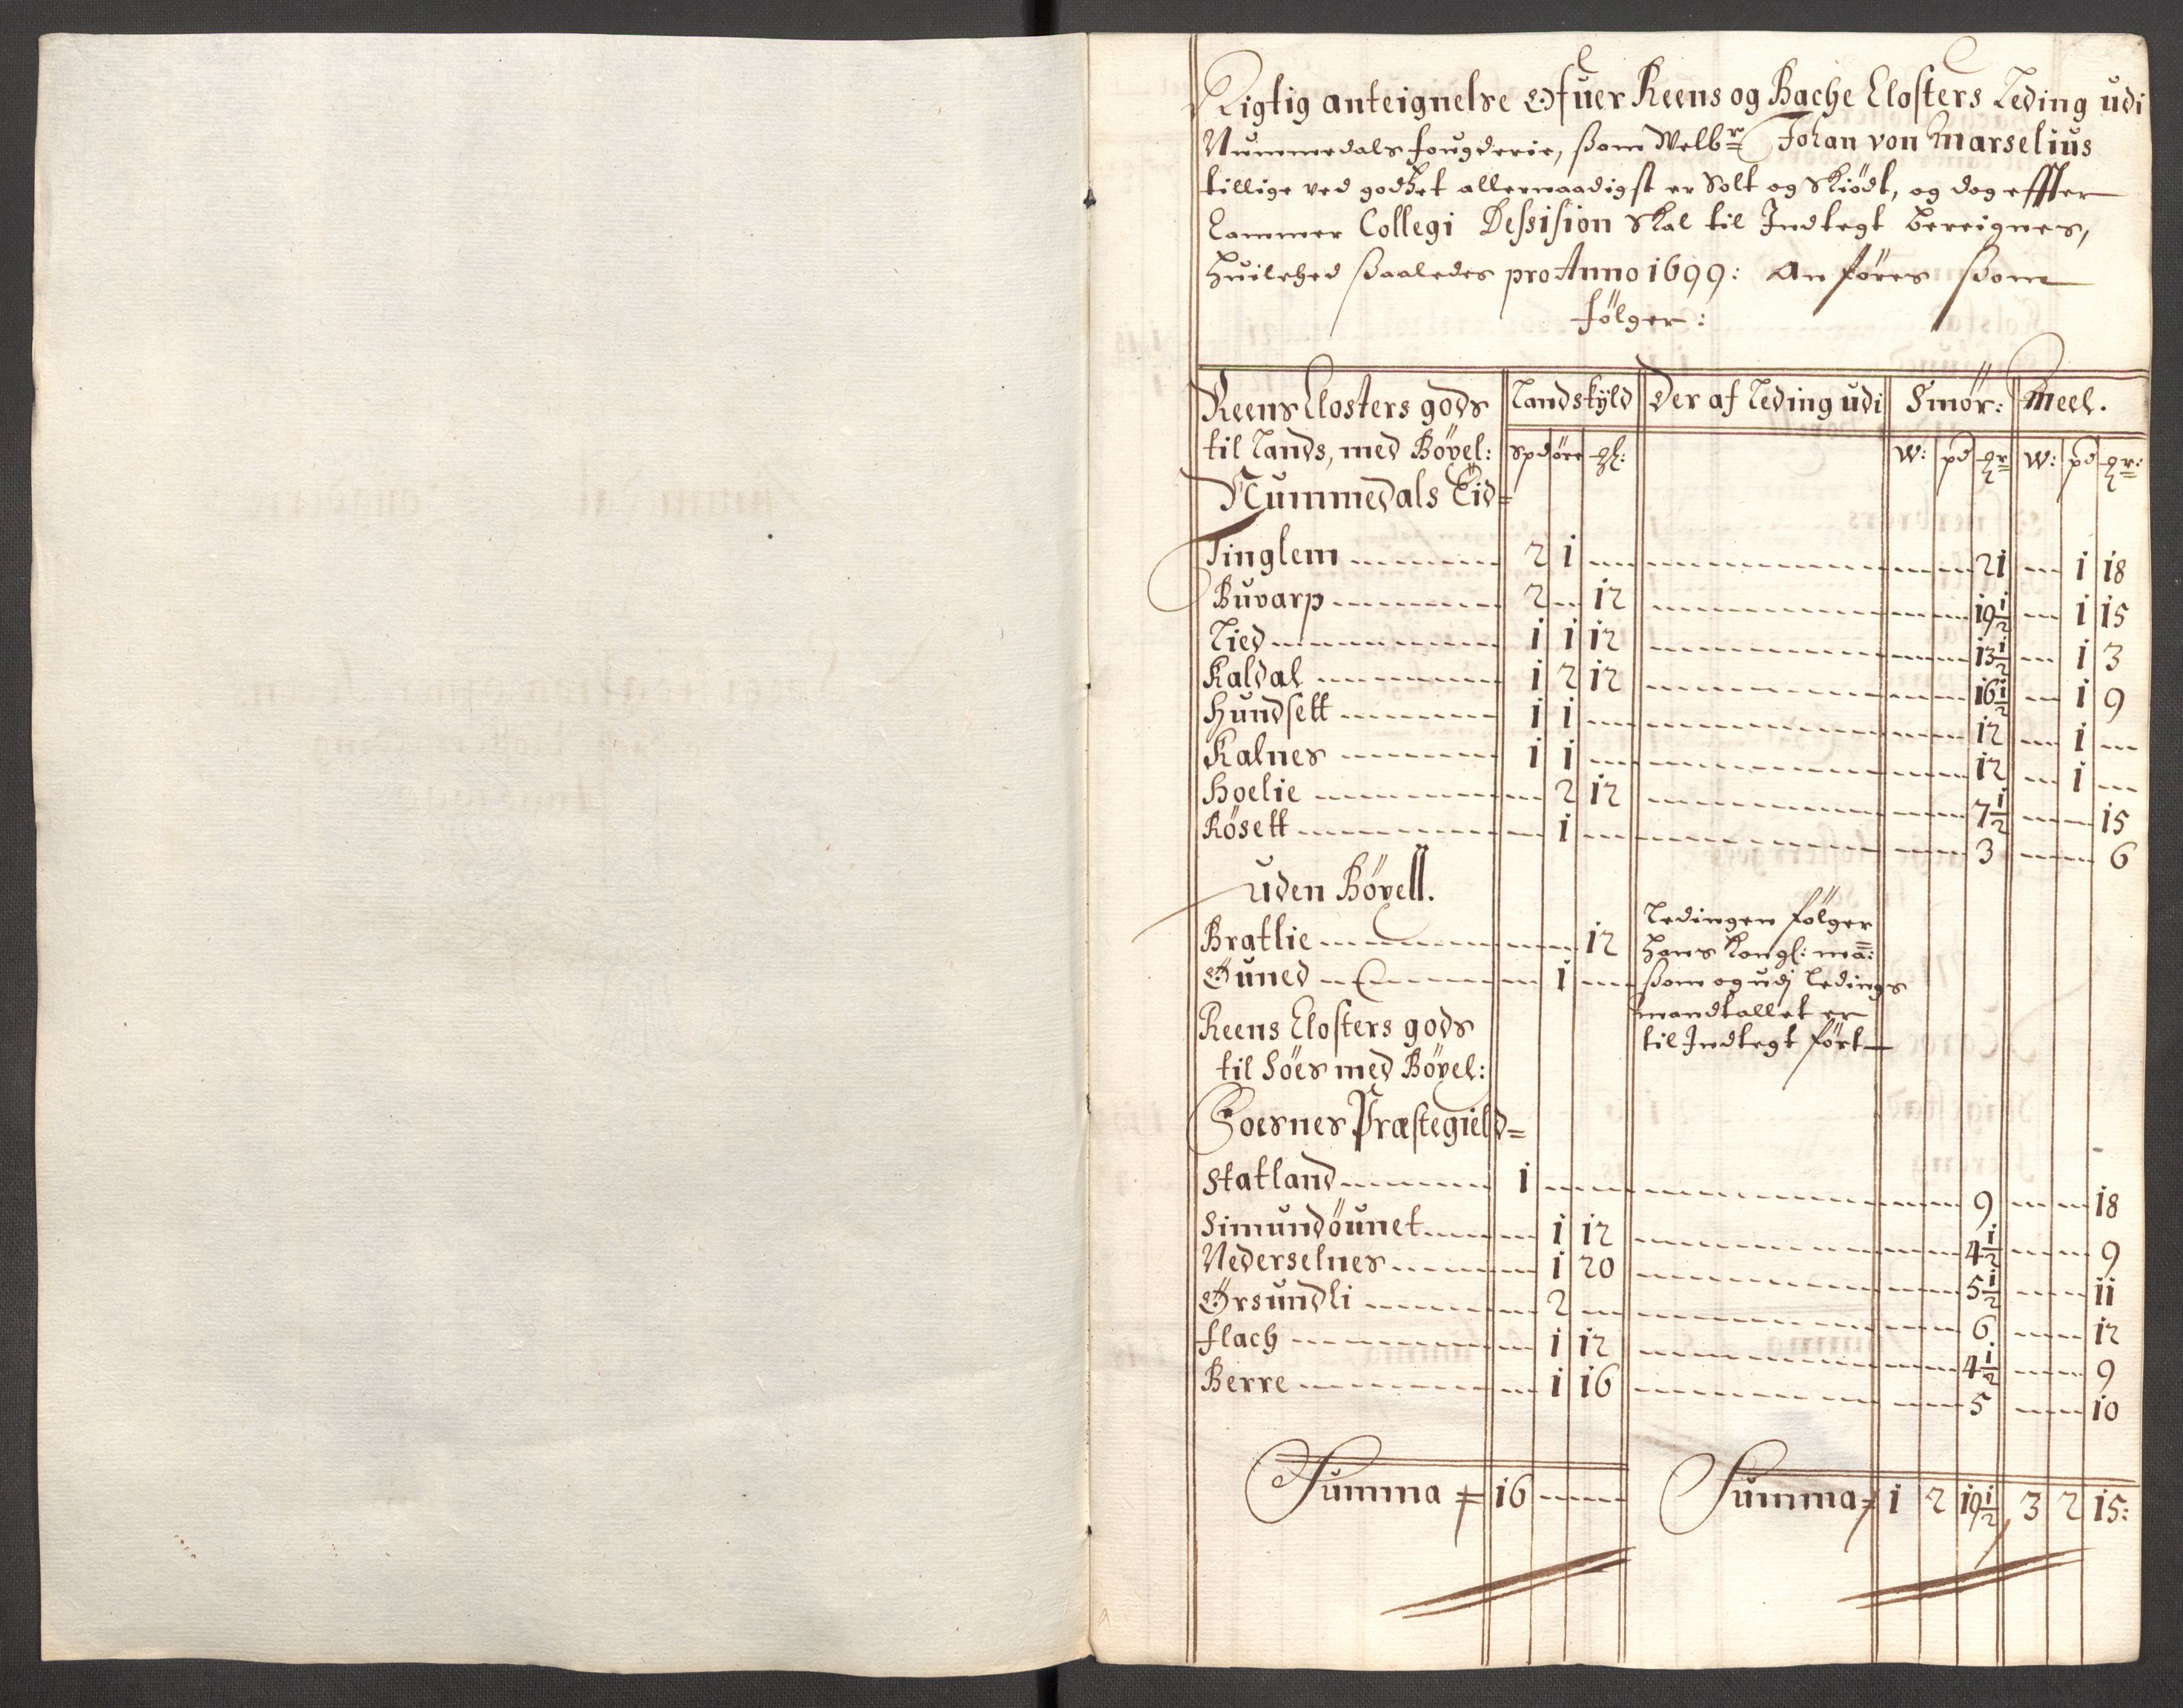 Rigtig anteignelse Ofuer Reens og Bache Closters Leding udi
Nummedals fougderie, som Welbr Johan von Marselius
tillige ved godset allernaadigst er Solt og Skiödt, og dog effter
Cammer Collegi Dessision skal til Indtegt bereignes,
huilched saaledes pro Anno 1699: Anföres som
fölger:
Reens Closters gods Landskyld Der af Leding udi Smör: Meel.
til Lands, med Böxel: spd öre W: pd W: pd
Nummedals Eid=
Tinglem 2 1 21 1 18
Buvarp 2 12 19½ 1 15
Lied 1 1 12 13½ 1 3
Kaldal 1 2 12 16½ 1 9
Hundsett 1 1 12 1
Kalnes 1 1 12 1
Hoelie 2 12 7½ 15
Rösett 1 3 6
uden Böxell.
Bratlie 12
Öuned 1
Ledingen fölger
Hans Kongl: ma:
som og udj Ledings
mandtallet er
til Indtegt fört
Reens Closters gods
til Söes med Böxel:
Foesnes Præstegield=
Statland 1 9 18
Simundöunet 1 12 4½ 9
Nederselnes 1 20 5½ 11
Örsundli 2 6 12
flach 1 12 4½ 9
Berre 1 16 5 10
Summa 16 Summa 1 2 19½ 3 2 15: